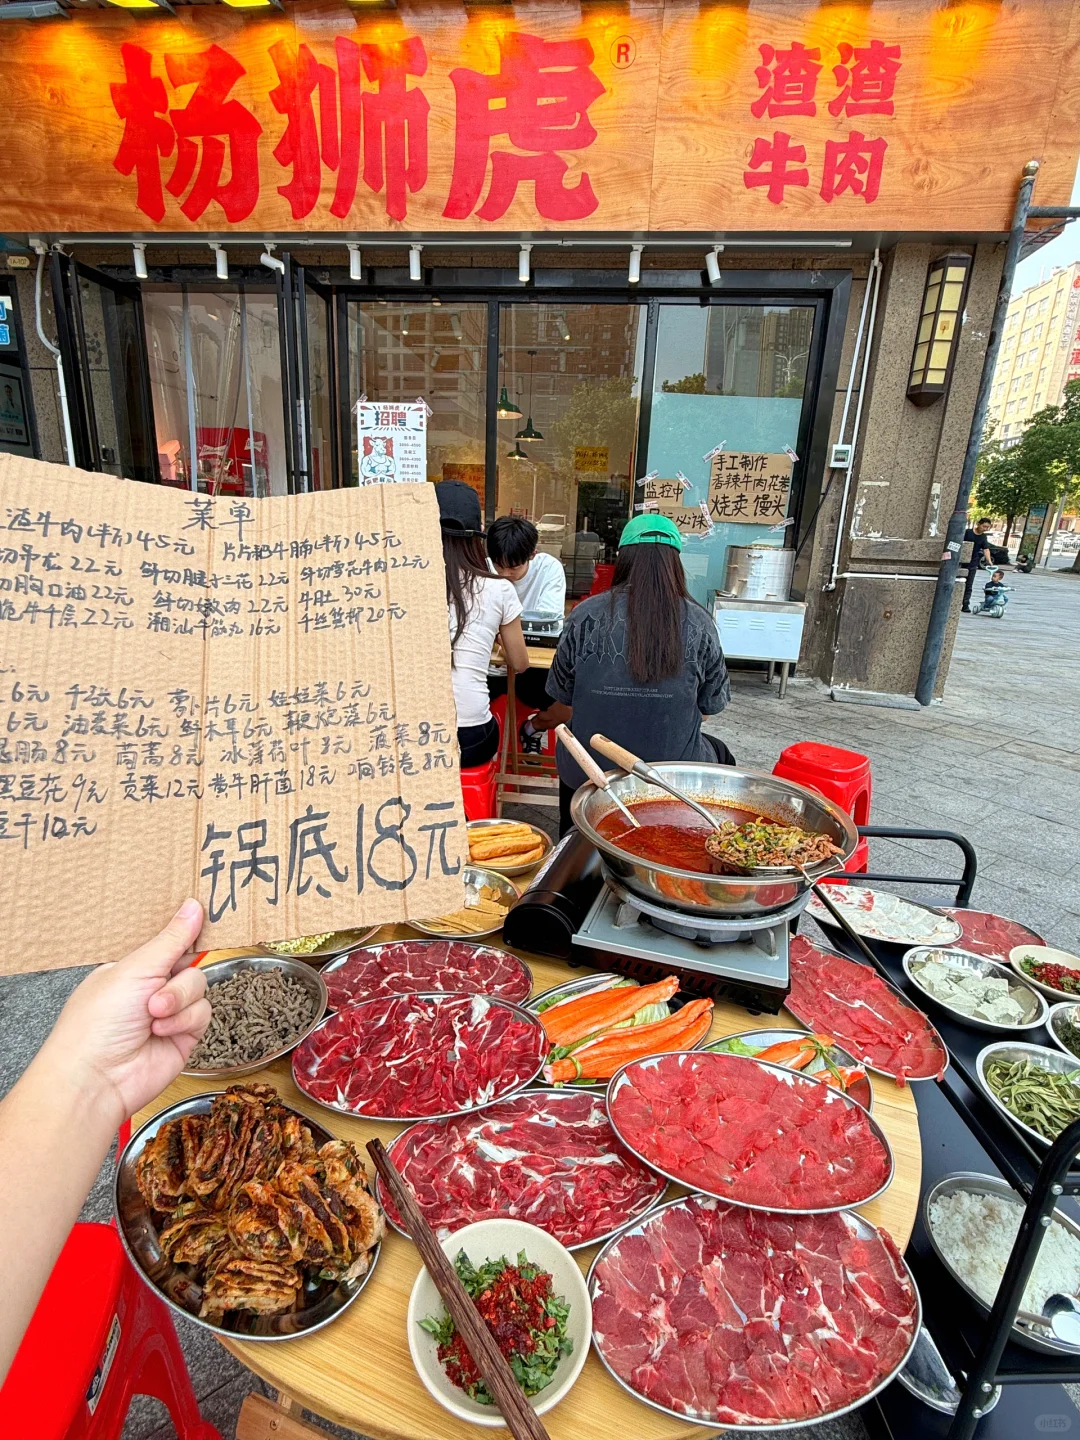 杨狮虎®
渣渣
牛肉
杨狮虎
招聘
监控中
手工制作
香辣牛肉花卷
烧卖 馒头
菜单
渣牛肉(半斤)45元 片片粑牛腩(半斤)45元
切吊龙22元 鲜切腱子三花22元 鲜切雪花牛肉22元
切胸口油22元 鲜切嫩肉22元 牛肚30元
脆牛千层22元 潮汕牛筋丸16元 千丝 20元
6元 千张6元 萝卜片6元 娃娃菜6元
6元 油麦菜6元 鲜木耳6元 鞭炮藻6元
肠8元 茼蒿8元 冰薄荷叶8元 菠菜8元
黑豆花9元 贡菜12元 黄牛肝菌18元 响铃卷8元
豆干10元
锅底18元
小红书